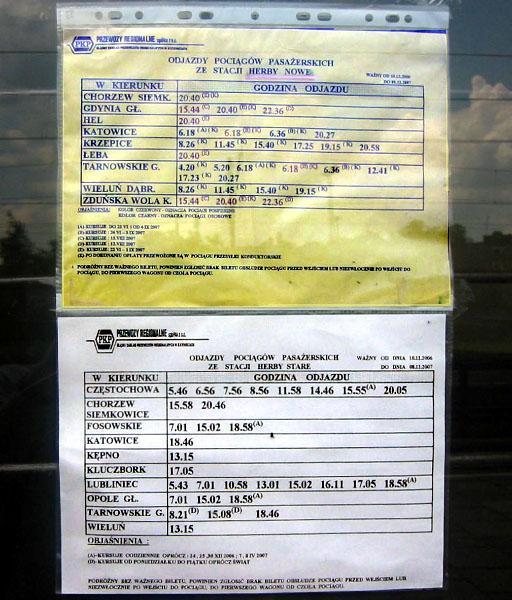 PKP PRZEWOZY REGIONALNE spółka z o.o.
ŚLĄSKI ZAKŁAD PRZEWOZÓW REGIONALNYCH W KATOWICACH
ODJAZDY POCIĄGÓW PASAŻERSKICH
ZE STACJI HERBY NOWE
WAŻNY OD 10.12.2006
DO 09.12.2007
W KIERUNKU GODZINA ODJAZDU
CHORZEW SIEMK. 20.40 (E) (K)
GDYNIA GŁ. 15.44 (C) 20.40 (E) (K) 22.36 (D)
HEL 20.40 (E)
KATOWICE 6.18 (A) (K) 6.18 (B) (K) 6.36 (B) (K) 20.27
KRZEPICE 8.26 (K) 11.45 (K) 15.40 (K) 17.25 19.15 (K) 20.58
ŁEBA 20.40 (E)
TARNOWSKIE G. 4.20 (K) 5.20 6.18 (A) (K) 6.18 (B) (K) 6.36 (B) (K) 12.41 (K)
17.23 (K) 20.27
WIELUŃ DĄBR. 8.26 (K) 11.45 (K) 15.40 (K) 19.15 (K)
ZDUŃSKA WOLA K. 15.44 (C) 20.40 (E) (K) 22.36 (D)
OBJAŚNIENIA: KOLOR CZERWONY - OZNACZA POCIĄGI POSPIESZNE
KOLOR CZARNY - OZNACZA POCIĄGI OSOBOWE
(A) KURSUJE: DO 23 VI i OD 4 IX 2007
(B) KURSUJE: 24 VI - 3 IX 2007
(C) KURSUJE:
(D) KURSUJE:
(E) KURSUJE: 22 VI - 1 IX 2007
(K) PO DOKONANIU OPŁATY PRZEWOŻONE SĄ W POCIĄGU PRZESYŁKI KONDUKTORSKIE
PODRÓŻNY BEZ WAŻNEGO BILETU, POWINIEN ZGŁOSIĆ BRAK BILETU OBSŁUDZE POCIĄGU PRZED WEJŚCIEM LUB NIEZWŁOCZNIE PO WEJŚCIU DO
POCIĄGU, DO PIERWSZEGO WAGONU OD CZOŁA POCIĄGU.
PKP PRZEWOZY REGIONALNE spółka z o.o.
ŚLĄSKI ZAKŁAD PRZEWOZÓW REGIONALNYCH W KATOWICACH
ODJAZDY POCIĄGÓW PASAŻERSKICH
ZE STACJI HERBY STARE
WAŻNY OD DNIA 10.12.2006
DO DNIA 08.12.2007
W KIERUNKU GODZINA ODJAZDU
CZĘSTOCHOWA 5.46 6.56 7.56 8.56 11.58 14.46 15.55(A) 20.05
CHORZEW
SIEMKOWICE 15.58 20.46
FOSOWSKIE 7.01 15.02 18.58(A)
KATOWICE 18.46
KĘPNO 13.15
KLUCZBORK 17.05
LUBLINIEC 5.43 7.01 10.58 13.01 15.02 16.11 17.05 18.58(A)
OPOLE GŁ. 7.01 15.02 18.58(A)
TARNOWSKIE G. 8.21(D) 15.08(D) 18.46
WIELUŃ 13.15
OBJAŚNIENIA :
(A)-KURSUJE CODZIENNIE OPRÓCZ : 24 , 25 ,30 XII 2006 ; 7 , 8 IV 2007
(D)-KURSUJE OD PONIEDZIAŁKU DO PIĄTKU OPRÓCZ ŚWIĄT
PODRÓŻNY BEZ WAŻNEGO BILETU, POWINIEN ZGŁOSIĆ BRAK BILETU OBSŁUDZE POCIĄGU PRZED WEJŚCIEM LUB
NIEZWŁOCZNIE PO WEJŚCIU DO POCIĄGU, DO PIERWSZEGO WAGONU OD CZOŁA POCIĄGU.